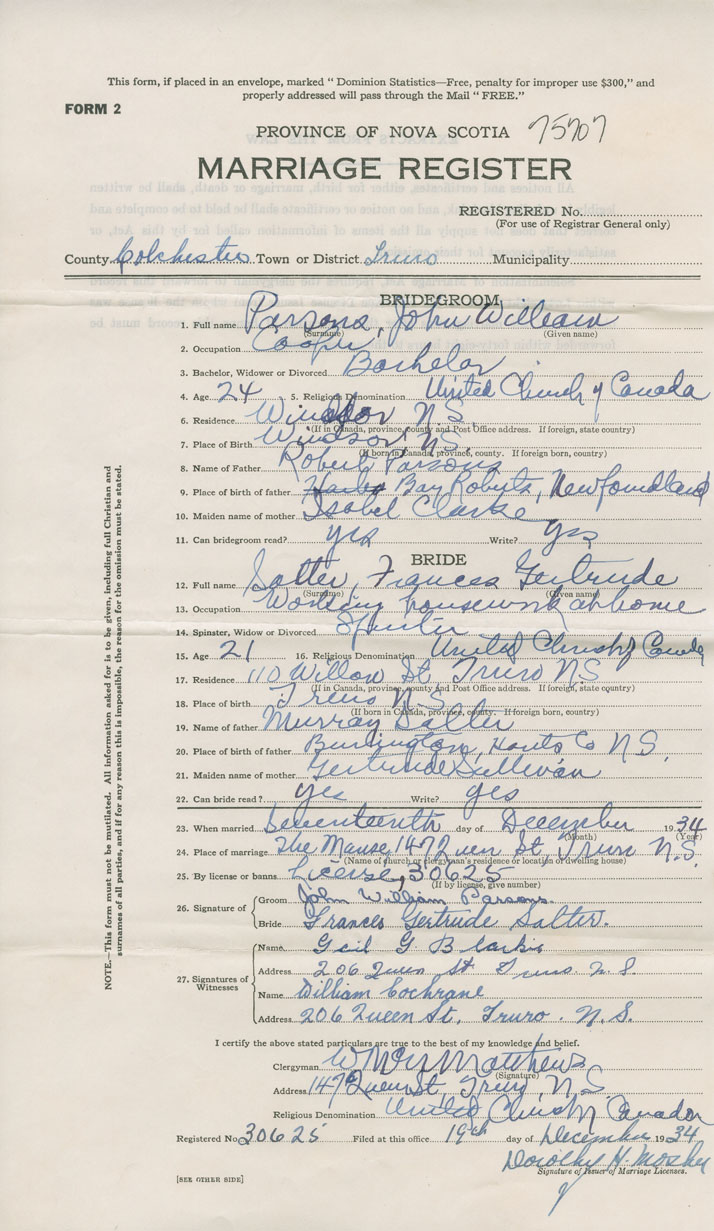 This form, if placed in an envelope, marked " Dominion Statistics—Free, penalty for improper use $300," and
properly addressed will pass through the Mail " FREE."
FORM 2
PROVINCE OF NOVA SCOTIA 75707
MARRIAGE REGISTER
REGISTERED No.
(For use of Registrar General only)
County Colchester Town or District Truro Municipality
BRIDEGROOM
1. Full name Parsons, John William
(Surname) (Given name)
2. Occupation Cooper
3. Bachelor, Widower or Divorced Bachelor
4. Age 24 5. Religious Denomination United Church of Canada
6. Residence Windsor N S
(If in Canada, province, county and Post Office address. If foreign, state country)
7. Place of Birth Windsor N S.
(If born in Canada, province, county. If foreign born, country)
8. Name of Father Robert Parsons
9. Place of birth of father Bay Roberts, Newfoundland
10. Maiden name of mother Isabel Clarke
11. Can bridegroom read? yes Write? yes
BRIDE
12. Full name Salter, Frances Gertrude
(Surname) (Given name)
13. Occupation Working housework at home
14. Spinster, Widow or Divorced Spinster
15. Age 21 16. Religious Denomination United Church of Canada
17. Residence 110 Willow St Truro N S
(If in Canada, province, county and Post Office address. If foreign, state country)
18. Place of birth Truro N S
(If born in Canada, province, county. If foreign born, country)
19. Name of father Murray Salter
20. Place of birth of father Burlington, Hants Co N S.
21. Maiden name of mother Gertrude Sullivan
22. Can bride read? yes Write? yes
23. When married Seventeenth day of December 1934
(Month) (Year)
24. Place of marriage The Manse, 147 Queen St, Truro N.S.
(Name of church or clergyman's residence or location of dwelling house)
25. By license or banns License, 30625
(If by license, give number)
26. Signature of Groom John William Parsons.
Bride Frances Gertrude Salter.
27. Signatures of Witnesses Name G
Address 206 Queen St Truro. N. S.
Name William Cochrane
Address 206 Queen St, Truro. N. S.
NOTE.—This form must not be mutilated. All information asked for is to be given, including full Christian and
surnames of all parties, and if for any reason this is impossible, the reason for the omission must be stated.
I certify the above stated particulars are true to the best of my knowledge and belief.
Clergyman Matthews
(Signature)
Address 147 Queen St, Truro, N. S.
Religious Denomination United Church of Canada
Registered No 30625 Filed at this office 19th day of December 1934
Dorothy H. Mosher
Signature of Issuer of Marriage Licenses.
[SEE OTHER SIDE]